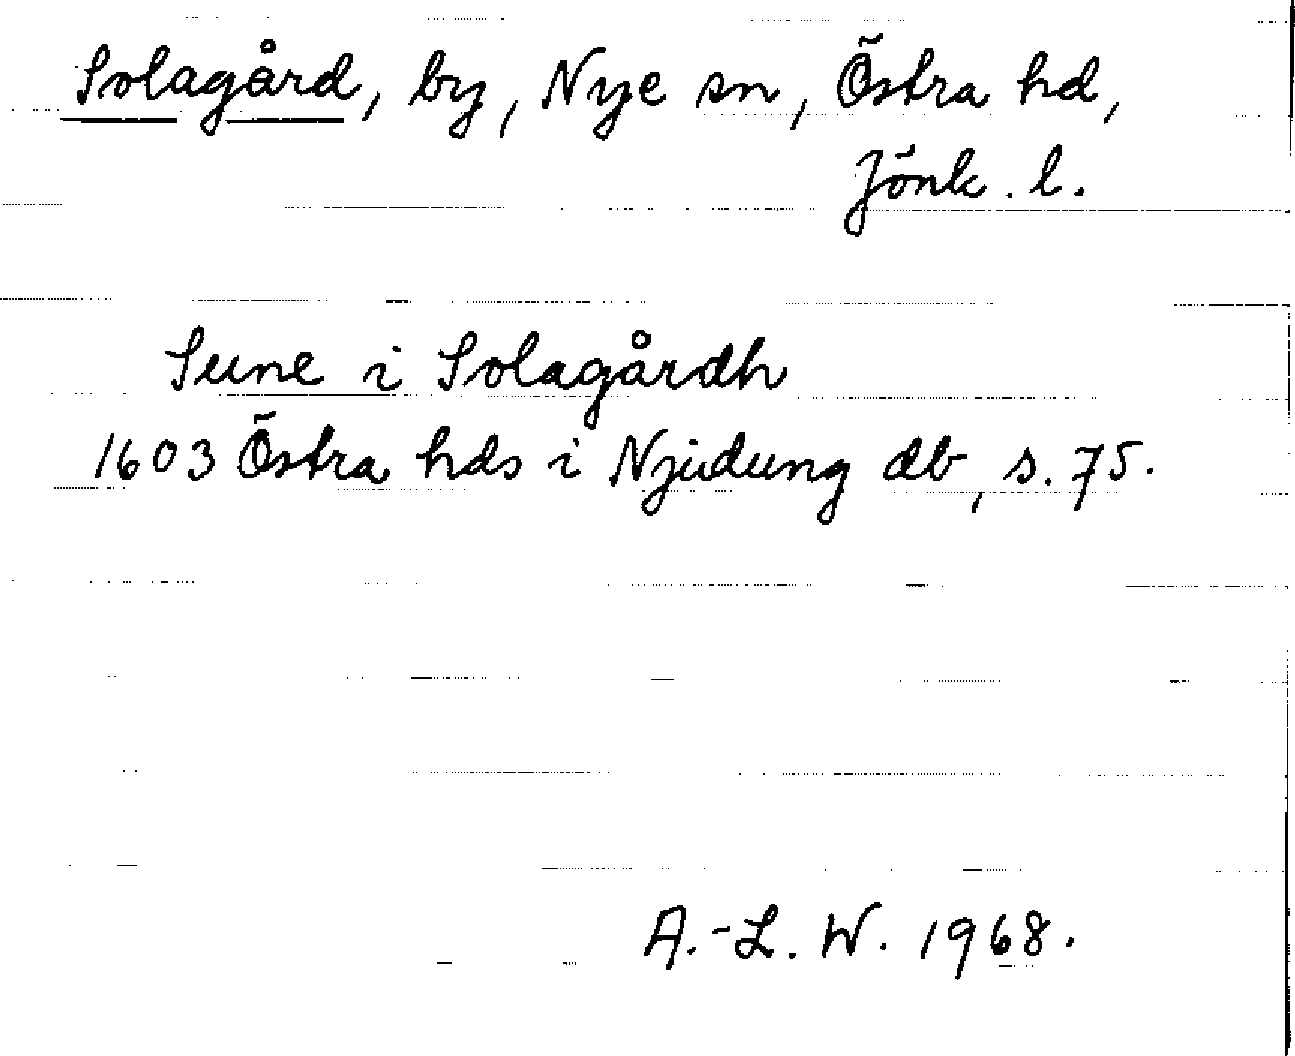 Solagård, by, Nye sn, Östra hd,
Jönk. l.
Sune i Solagårdh
1603 Östra hds i Njudung db, s. 75.
A.-L. W. 1968.